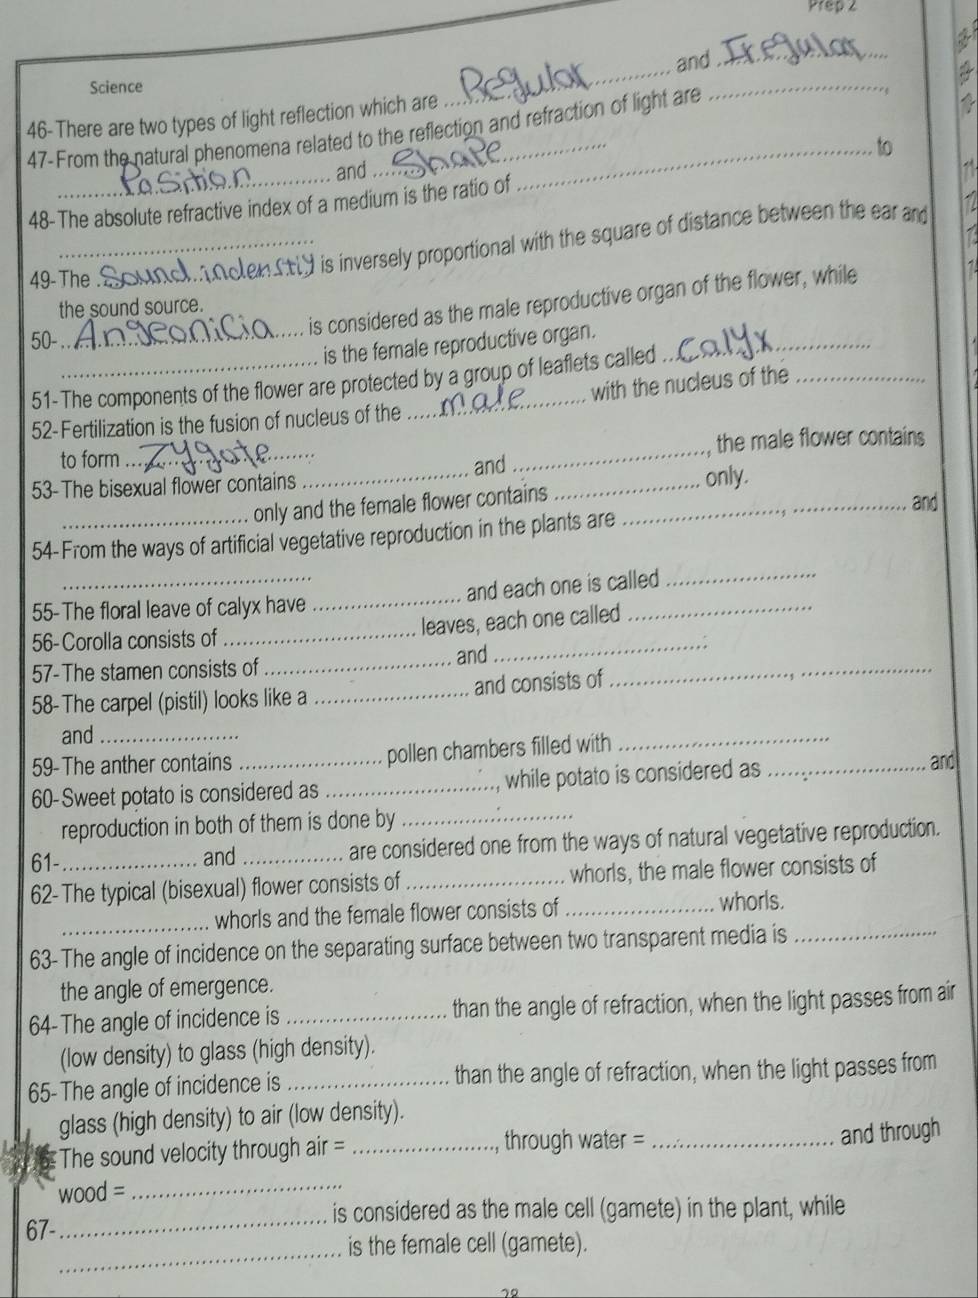 Prep 2
Science
46- There are two types of light reflection which are ....Regular............ and ..Iregular....
47- From the natural phenomena related to the reflection and refraction of light are ..............................,
.........Position............. and .....Shape..................
48- The absolute refractive index of a medium is the ratio of .......................................................... to
..........................................
49- The .Sound indenstiy is inversely proportional with the square of distance between the ear and
the sound source.
50- ..Angeonicia..... is considered as the male reproductive organ of the flower, while
.......................................... is the female reproductive organ.
51- The components of the flower are protected by a group of leaflets called ..Calyx................
52- Fertilization is the fusion of nucleus of the .....male........... with the nucleus of the .....................
to form ...Zygote.......
53- The bisexual flower contains ........................... and ................................, the male flower contains
.............................. only and the female flower contains ........................ only.
54- From the ways of artificial vegetative reproduction in the plants are .........................., ................... and
..........................................
55- The floral leave of calyx have ........................ and each one is called .........................
56- Corolla consists of ................................ leaves, each one called ...............................
57- The stamen consists of ............................... and ...................................
58- The carpel (pistil) looks like a ......................... and consists of .............................., ......................
and .......................
59- The anther contains ........................ pollen chambers filled with ...................................
60- Sweet potato is considered as ............................, while potato is considered as .......................... and
reproduction in both of them is done by ............................
61- ...................... and ................ are considered one from the ways of natural vegetative reproduction.
62- The typical (bisexual) flower consists of .......................... whorls, the male flower consists of
........................ whorls and the female flower consists of ........................ whorls.
63- The angle of incidence on the separating surface between two transparent media is .......................
the angle of emergence.
64- The angle of incidence is .......................... than the angle of refraction, when the light passes from air
(low density) to glass (high density).
65- The angle of incidence is .......................... than the angle of refraction, when the light passes from
glass (high density) to air (low density).
The sound velocity through air = ......................., through water = .............................. and through
wood = ..................................
67- ........................................... is considered as the male cell (gamete) in the plant, while
.............................................. is the female cell (gamete).